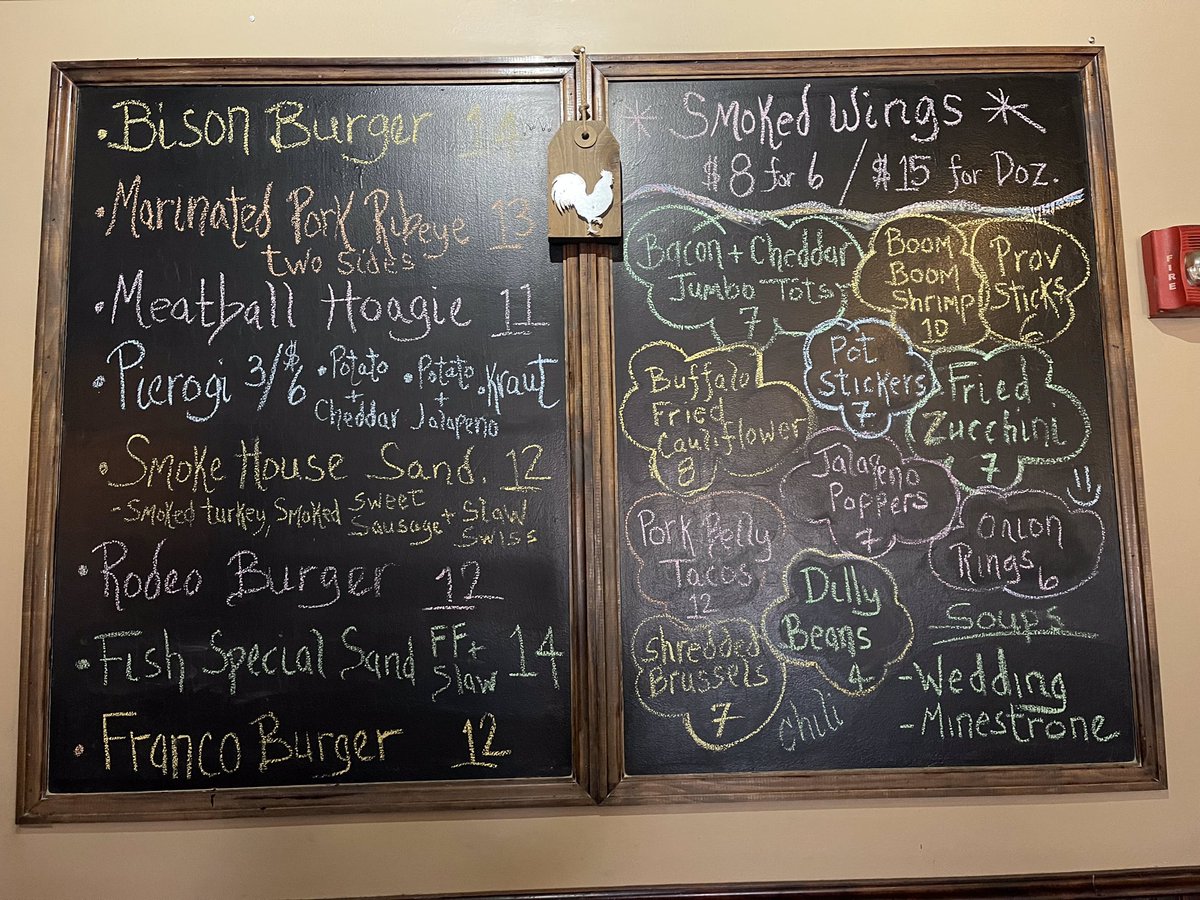 • Bison Burger
• Marinated Pork Ribeye 13
two sides
• Meatball Hoagie 11
• Pierogi 3/$6 • Potato + Cheddar • Potato + Jalapeno • Kraut
• Smoke House Sand. 12
- Smoked turkey, Smoked Sweet Sausage + Slaw Swiss
• Rodeo Burger 12
• Fish Special Sand FF + Slaw 14
• Franco Burger 12
* Smoked Wings *
$8 for 6 / $15 for Doz.
Bacon + Cheddar
Jumbo Tots
7
Boom
Boom
Shrimp
10
Prov
Sticks
6
Buffalo
Fried
Cauliflower
8
Pot
Stickers
7
Fried
Zucchini
7
Jalapeno
Poppers
7
Pork Belly
Tacos
12
Onion
Rings 6
Dilly
Beans
4
Shredded
Brussels
7
Chili
Soups
- Wedding
- Minestrone
FIRE